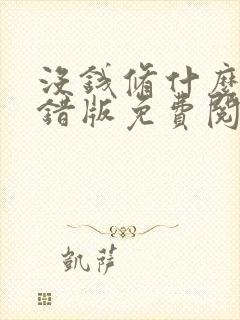 没錢脩什麼
錯版免費閱
凱薩